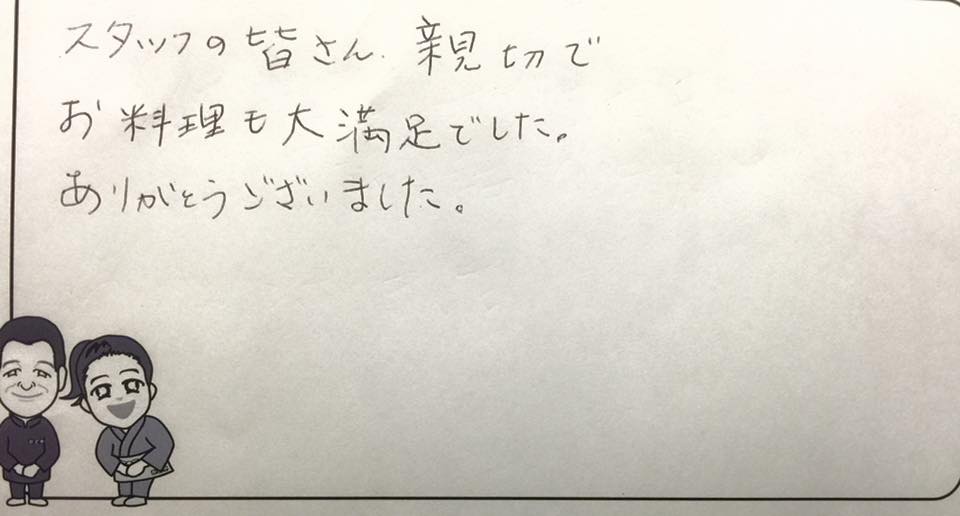 スタッフの皆さん、親切で
お料理も大満足でした。
ありがとうございました。